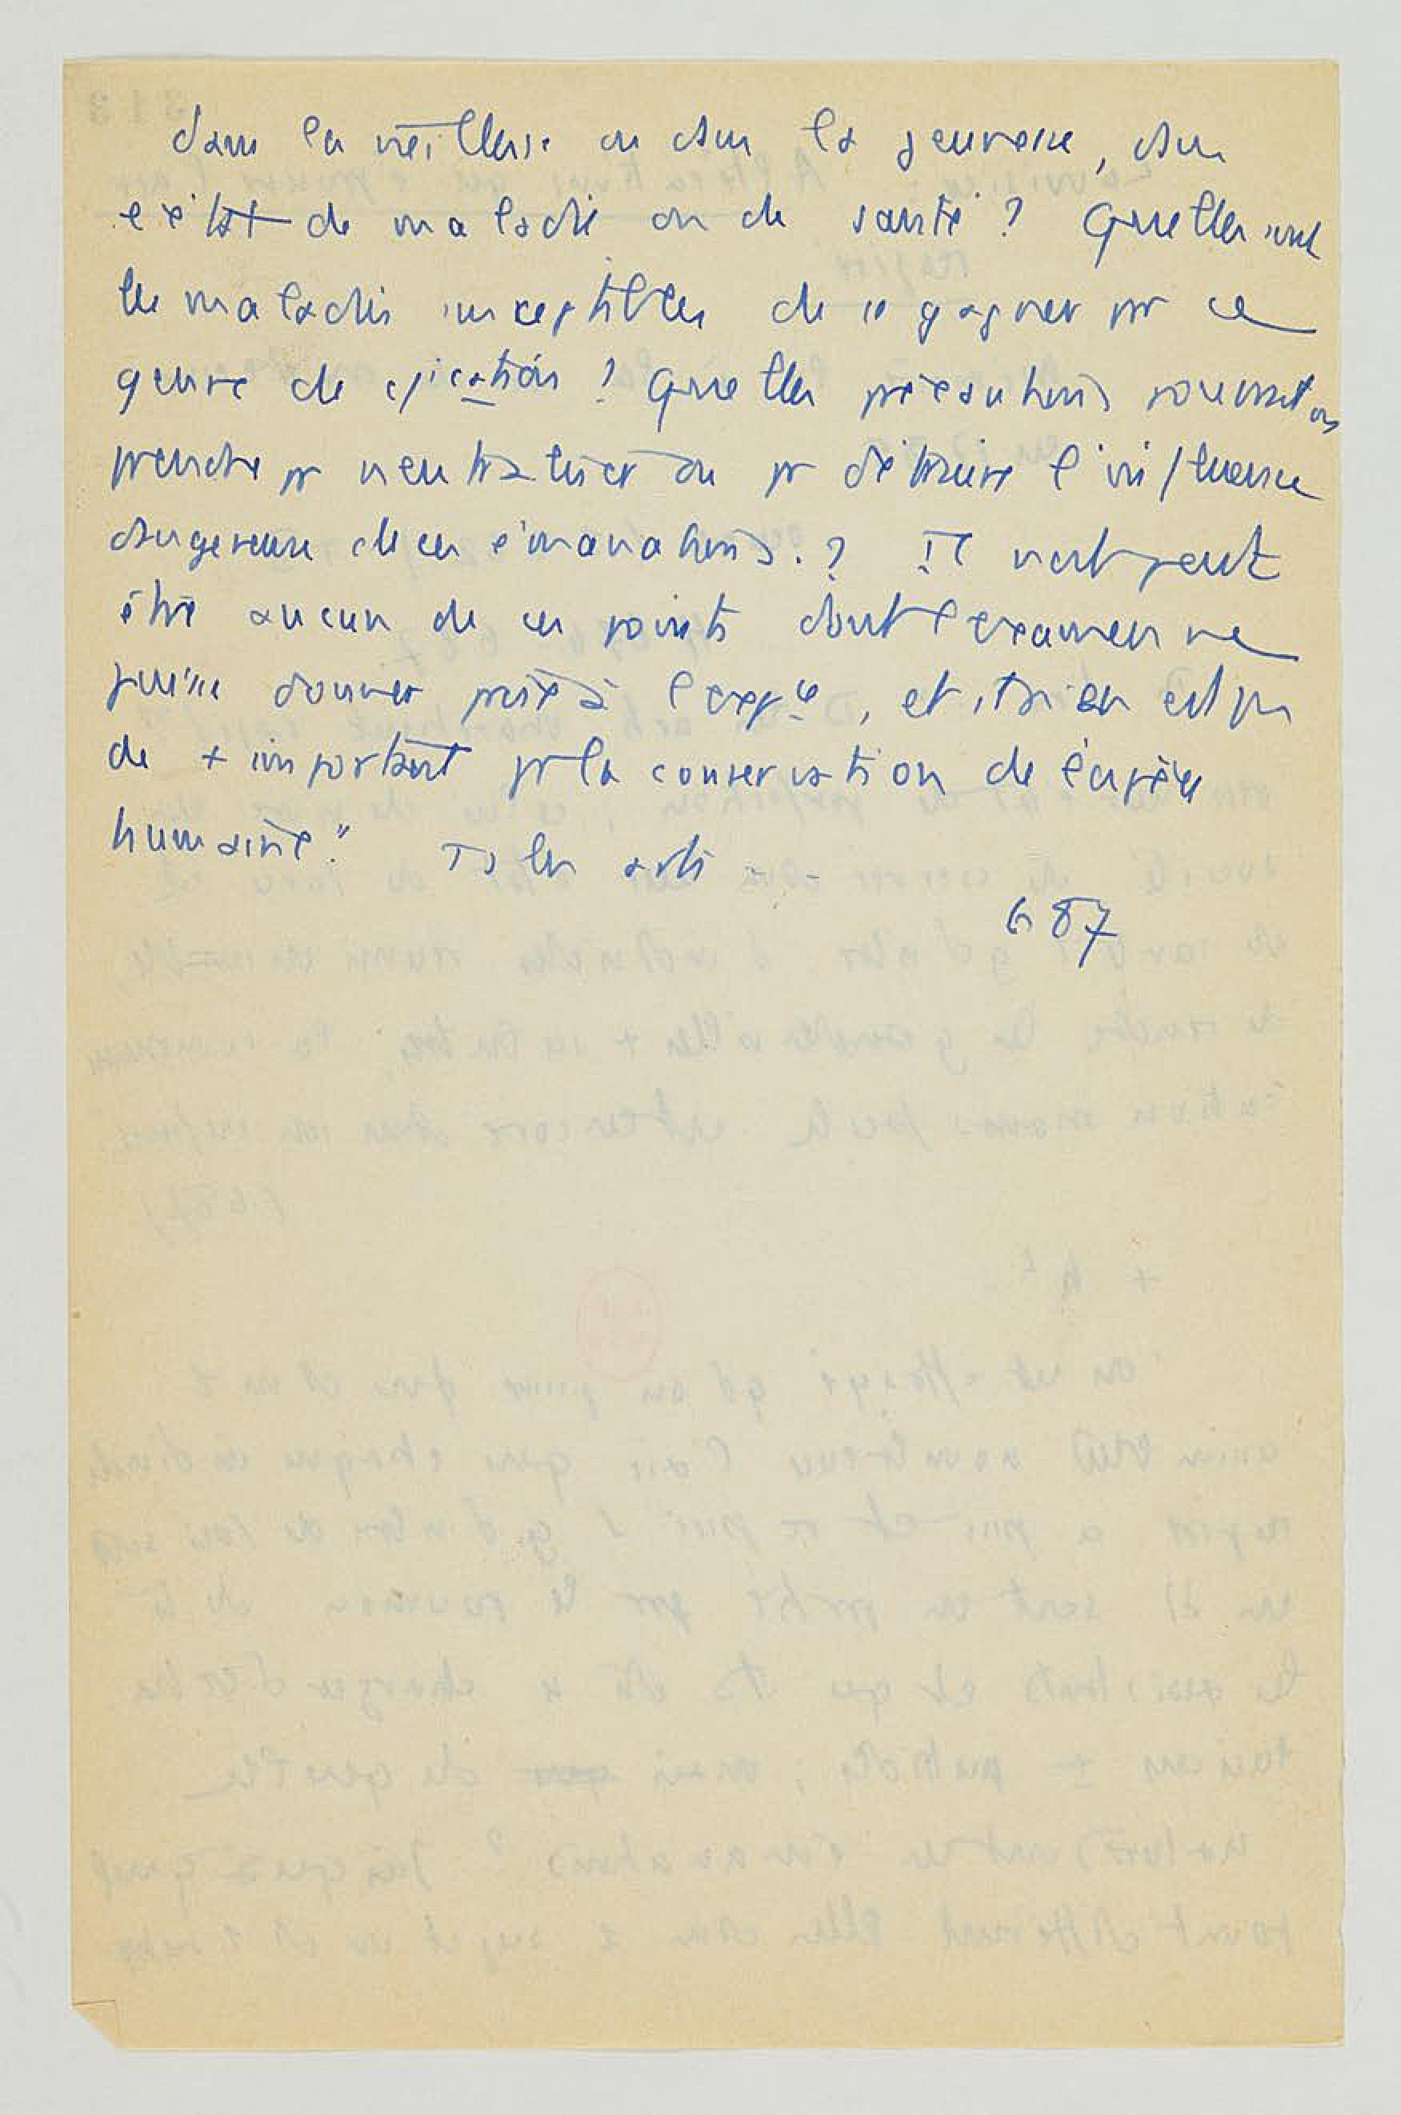 dans la vieillesse ou dans la jeunesse, dans
l'état de maladie ou de santé ? Quelles sont
les maladies susceptibles de se gagner pr ce
genre de ? Quelles précautions pourrait on
prendre pr neutraliser ou pr détruire l'influence
dangereuse de ces émanations. ? Il n'est peut
être aucun de ces points dont l'examen ne
puisse donner prise à l'expce, et rien est pr
de + important pr la conservation de l'espèce
humaine."
687